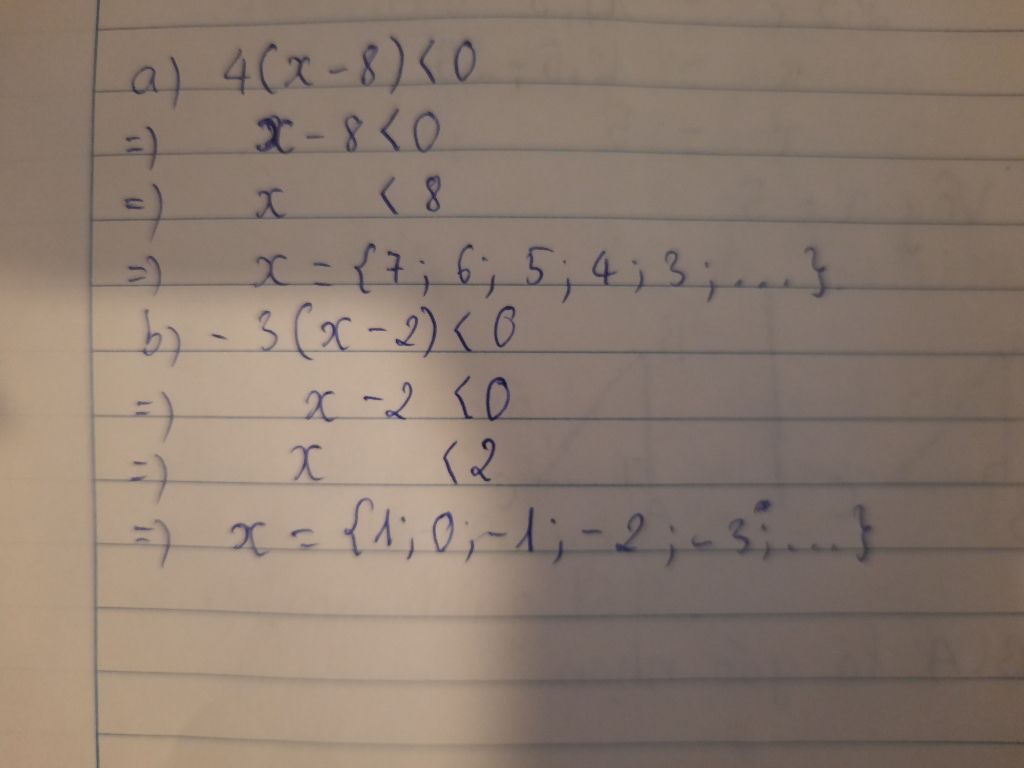 a) 4(x - 8) < 0
=) x - 8 < 0
=) x < 8
=) x = {7; 6; 5; 4; 3; ...}
b) - 3(x - 2) < 0
=) x - 2 < 0
=) x < 2
=) x = {1; 0; -1; -2; -3; ...}